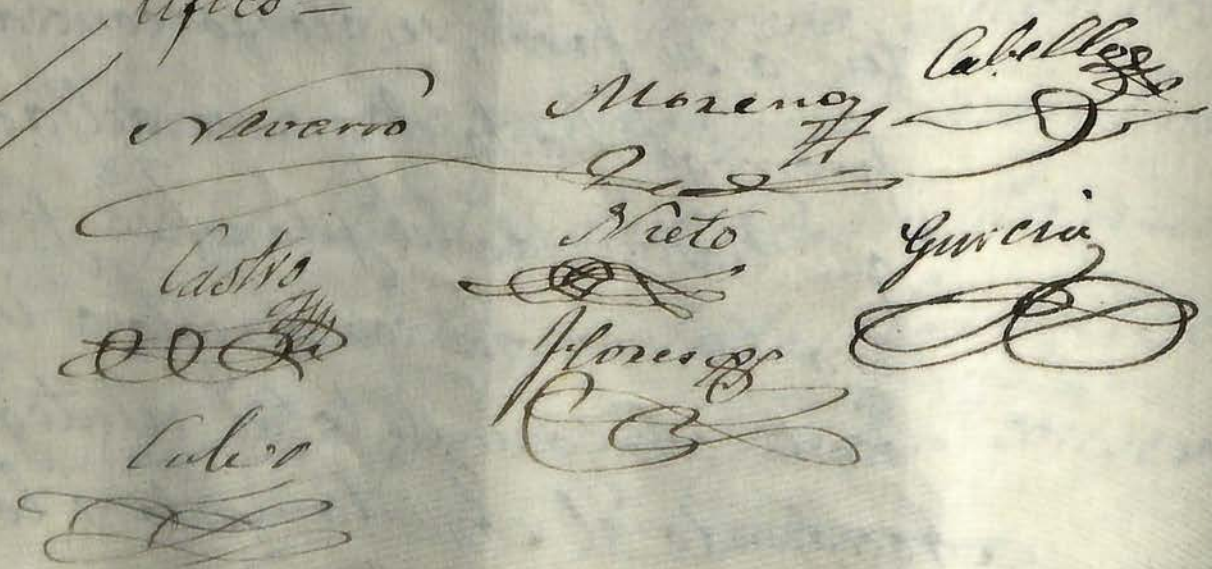 Navarro Moreno Cabello
Castro Nieto Garcia
Flores